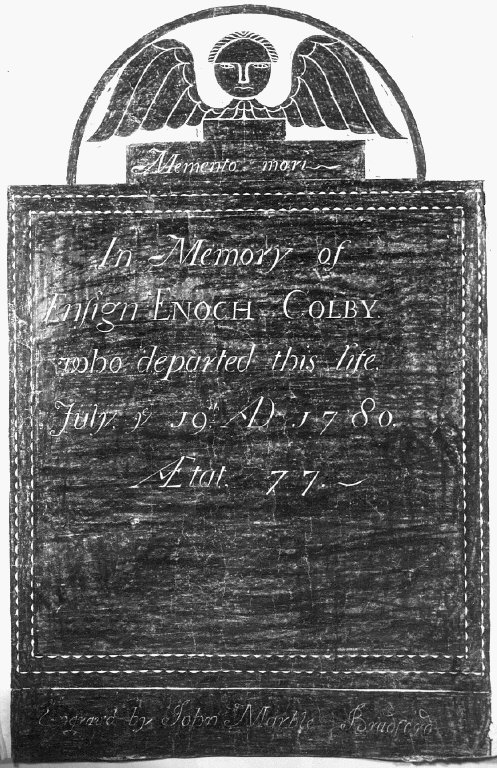 Memento mori
In Memory of
Enſign ENOCH COLBY.
who departed this life.
July. yͤ 19ͭͪ. AD. 1780.
Ætat. 77.
Engrav'd by John Marble Bradford